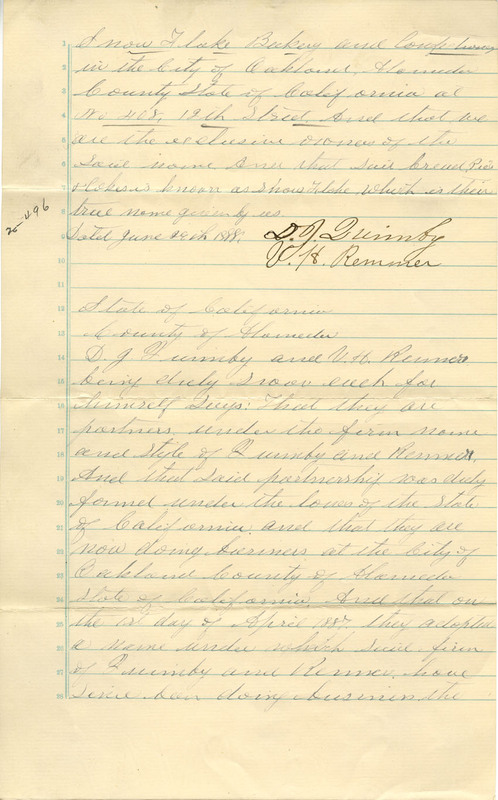 Snow Flake Bakery and Confectionery
in the City of Oakland, Alameda
County State of California at
No 418, 12th Street. And that we
are the exclusive owners of the
said name and that said bread Pies
& Cakes is known as Snow Flake which is their
true name given by us.
Dated June 29th 188
D. J Quimby
V. H. Remmer
20-496
State of California
County of Alameda
D. J Quimby and V. H. Remmer
being duly Sworn each for
himself Says: That they are
partners, under the firm name
and Style of Quimby and Remmer.
And that said partnership was duly
formed under the laws of the State
of California, and that they are
now doing business at the City of
Oakland County of Alameda
State of California, And that on
the 1st day of April 188 they adopted
a name under which said firm
of Quimby and Remmer have
since been doing business, the